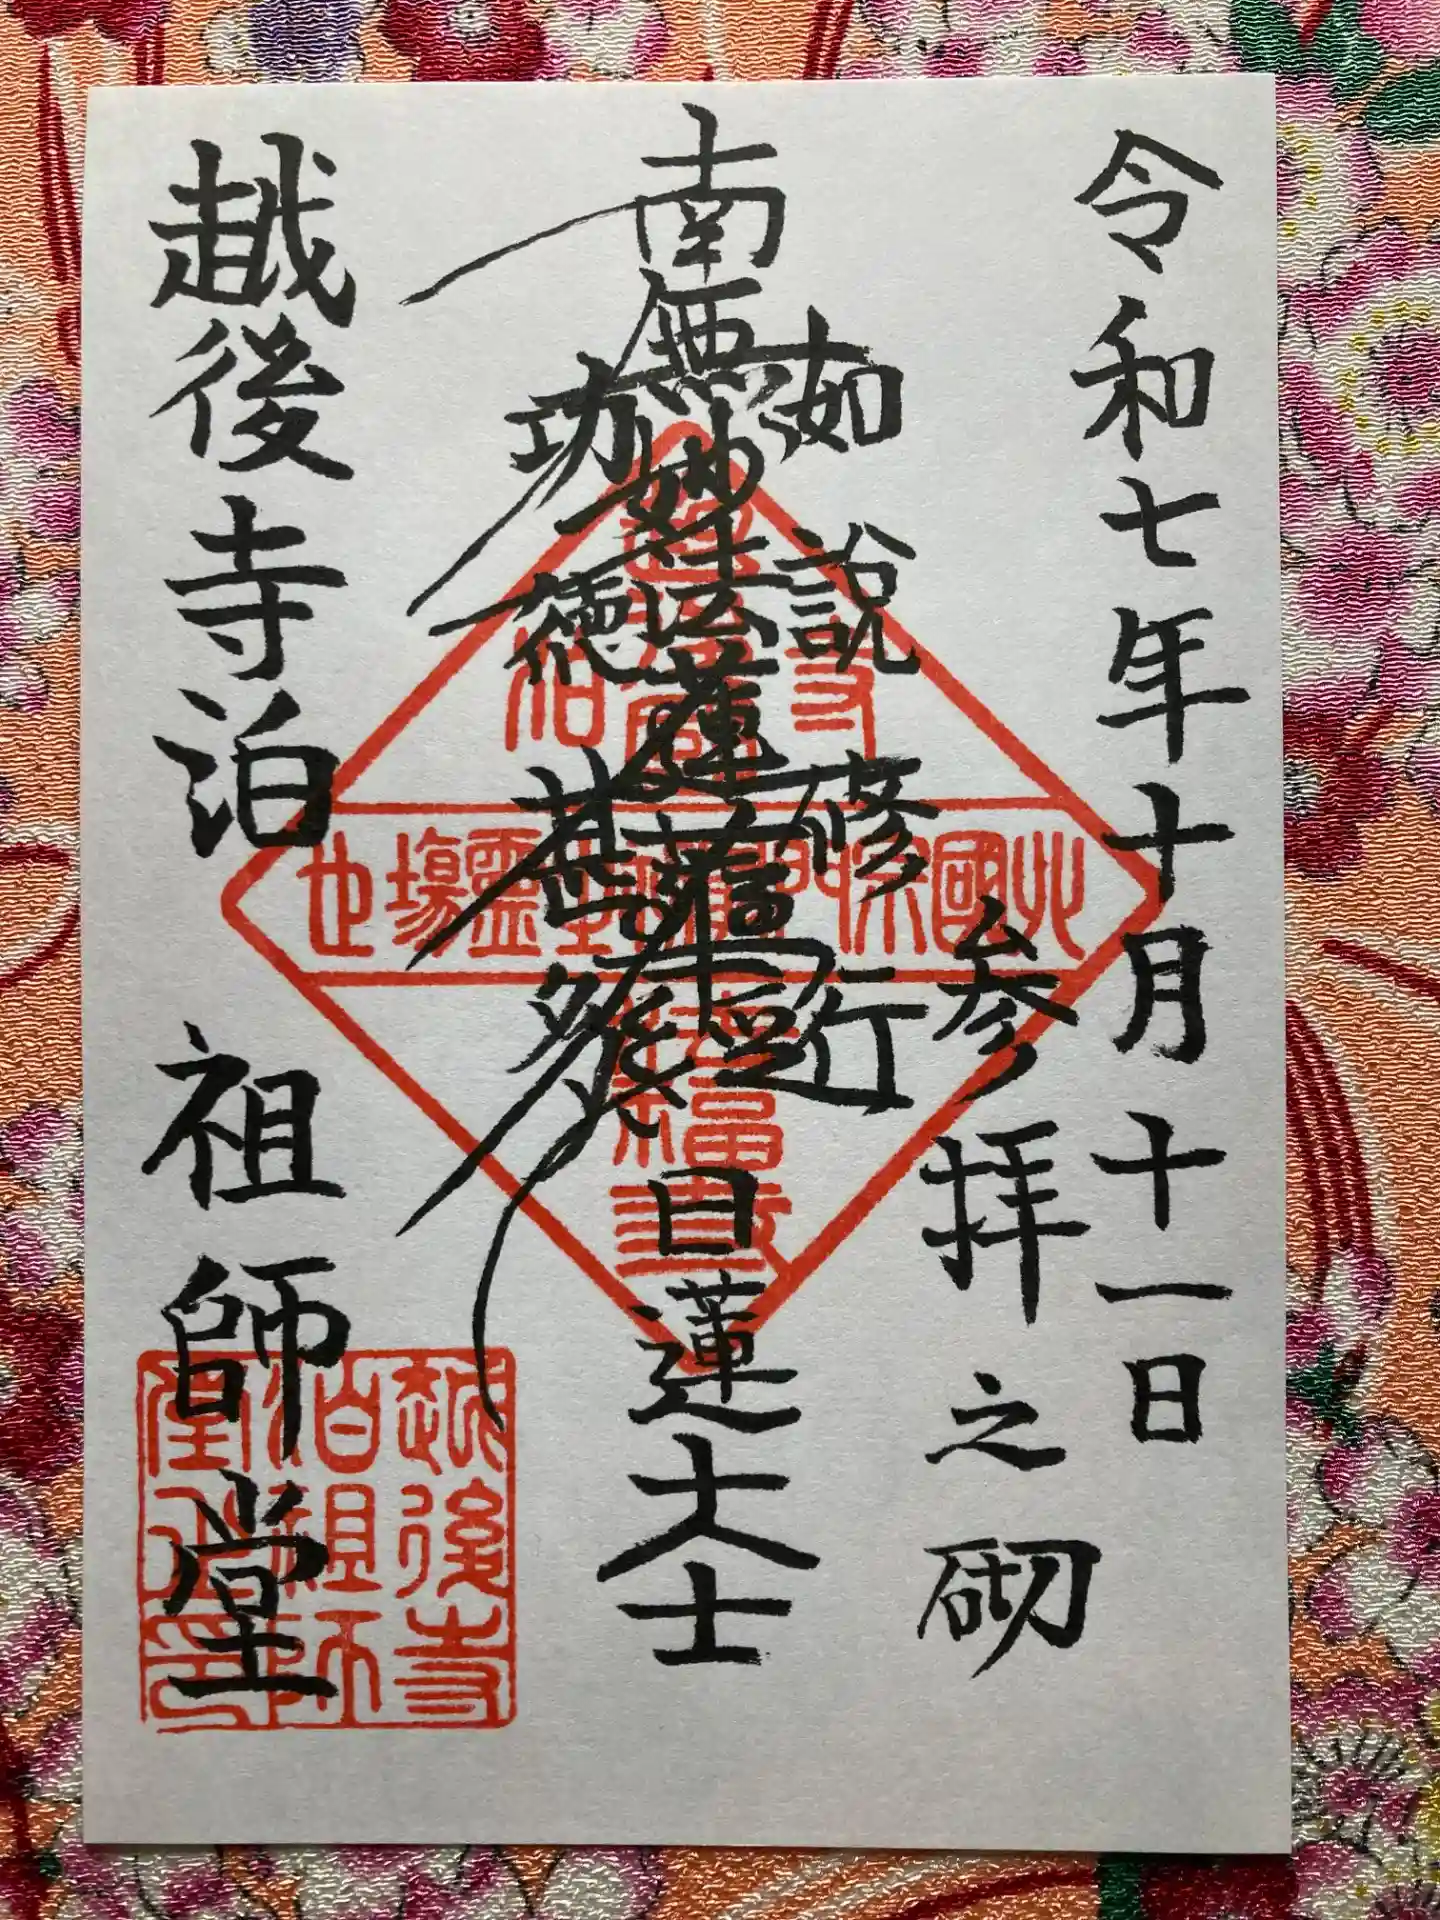 令和七年十月十一日
参拝之砌
如説修行
南無妙法蓮華経
日蓮大士
功徳甚多
越後寺泊 祖師堂
寺泊
北國宗門
靈場也
越後寺
泊祖師
堂